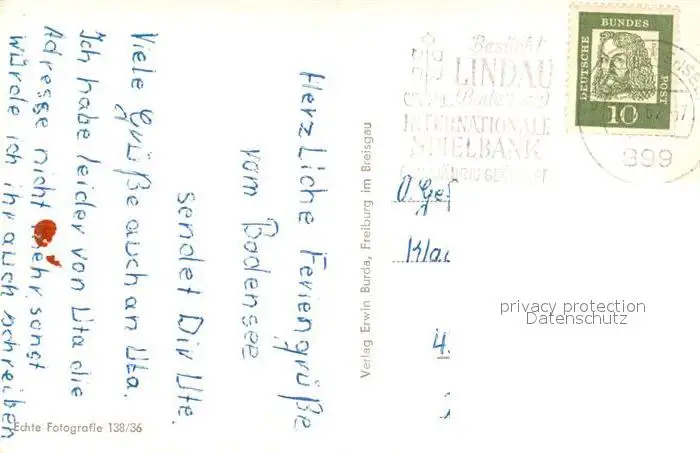 Herzliche Feriengrüße
vom Bodensee
sendet Dir Ute.
Viele Grüße auch an Uta.
Ich habe leider von Uta die
Adresse nicht mehr, sonst
würde ich ihr auch schreiben
Echte Fotografie 138/36
Verlag Erwin Burda, Freiburg im Breisgau
Besucht
LINDAU
Bodensee
INTERNATIONALE
SPIELBANK
DEUTSCHE
BUNDES
POST
10
899
privacy protection
Datenschutz